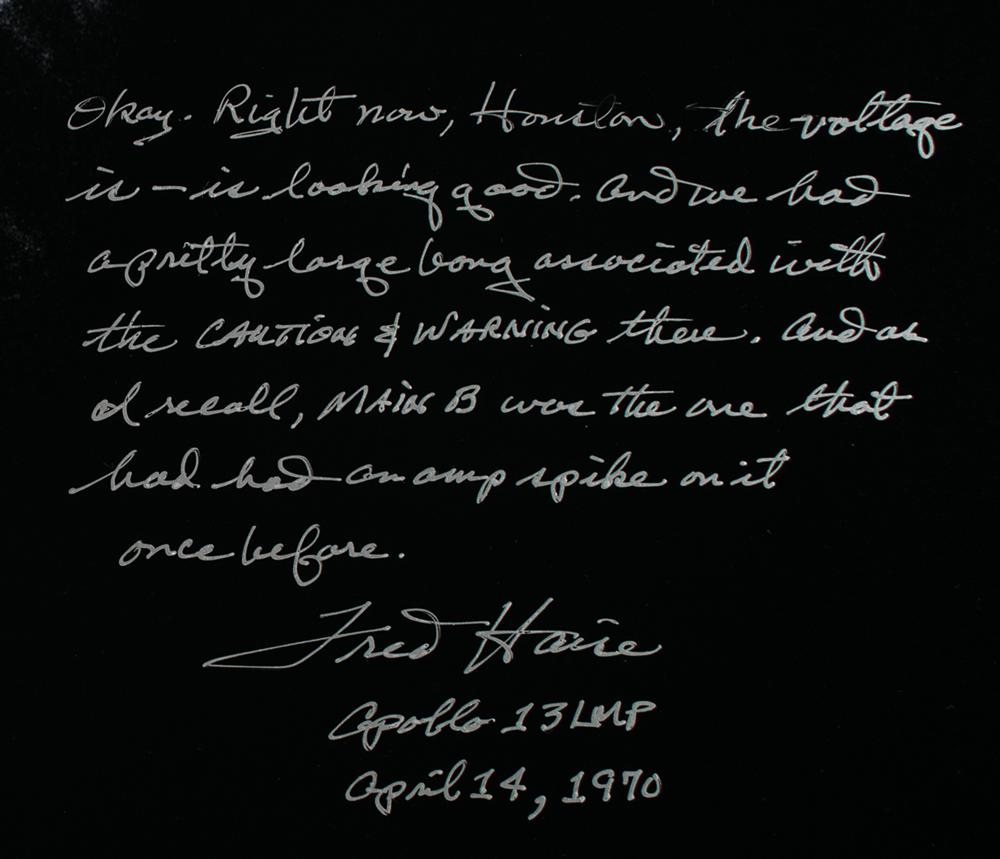 Okay. Right now, Houston, the voltage
is – is looking good. And we had
a pretty large bang associated with
the CAUTION & WARNING there. And as
I recall, MAIN B was the one that
had had an amp spike on it
once before.
Fred Haise
Apollo 13 LMP
April 14, 1970